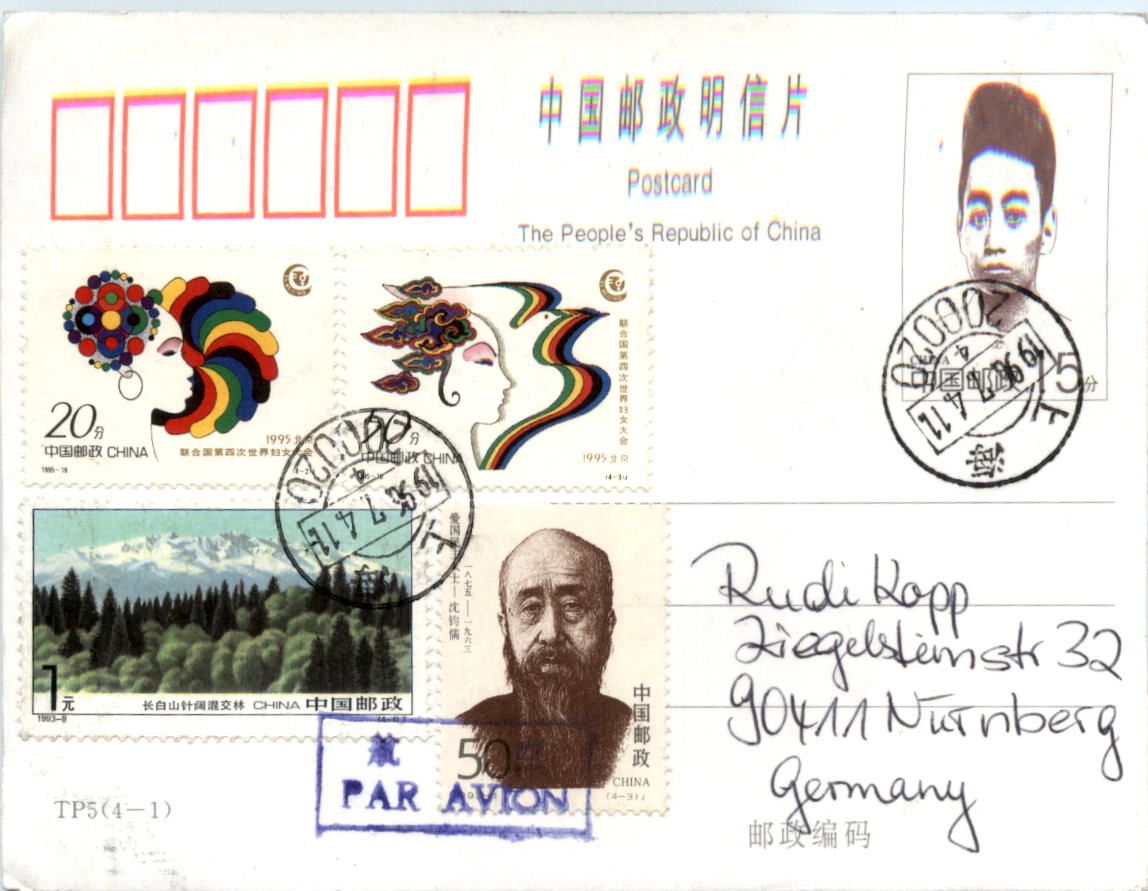 中国邮政明信片
Postcard
The People's Republic of China
20分
中国邮政 CHINA
1995-18
1995北京
联合国第四次世界妇女大会
(4-2)J
50分
中国邮政 CHINA
联合国第四次世界妇女大会
1995北京
(4-3)J
中国邮政
15分
200020
1996.7.4.11
上海
200020
1996.7.4.11
上海
1元
1993-9
长白山针阔混交林 CHINA 中国邮政
(4-4)T
一八七五——一九六三
沈钧儒
中国邮政
CHINA
50分
(4-3)J
航
PAR AVION
Rudi Kopp
Ziegelsteinstr 32
90411 Nürnberg
Germany
TP5(4-1)
邮政编码